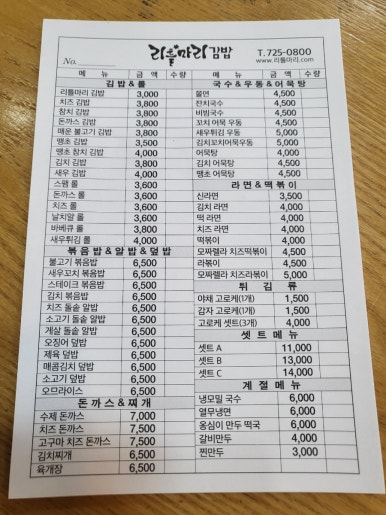 리틀마리 김밥
T. 725-0800
www.리틀마리.com
No.
메 뉴 금 액 수량
김 밥 & 롤
리틀마리 김밥 3,000
치즈 김밥 3,800
참치 김밥 3,800
돈까스 김밥 3,800
매운 불고기 김밥 3,800
땡초 김밥 3,500
땡초 참치 김밥 4,000
김치 김밥 3,800
새우 김밥 4,000
스팸 롤 3,600
돈까스 롤 3,600
치즈 롤 3,600
날치알 롤 3,600
바베큐 롤 3,800
새우튀김 롤 4,000
볶음밥&알밥&덮밥
불고기 볶음밥 6,500
새우꼬치 볶음밥 6,500
스테이크 볶음밥 6,500
김치 볶음밥 6,500
치즈 돌솥 알밥 6,500
소고기 돌솥 알밥 6,500
게살 돌솥 알밥 6,500
오징어 덮밥 6,500
제육 덮밥 6,500
매콤김치 덮밥 6,500
소고기 덮밥 6,500
오므라이스 6,500
돈까스&찌개
수제 돈까스 7,000
치즈 돈까스 7,500
고구마 치즈 돈까스 7,500
김치찌개 6,500
육개장 6,500
메 뉴 금 액 수량
국수&우동&어묵탕
쫄면 4,500
잔치국수 4,500
비빔국수 4,500
꼬치 어묵 우동 4,500
새우튀김 우동 5,000
김치꼬치어묵우동 5,000
어묵탕 4,000
김치 어묵탕 4,500
땡초 어묵탕 4,500
라면&떡볶이
신라면 3,500
김치 라면 4,000
떡 라면 4,000
치즈라면 4,000
떡볶이 4,000
모짜렐라 치즈떡볶이 4,500
라볶이 4,500
모짜렐라 치즈라볶이 5,000
튀 김 류
야채 고로케(1개) 1,500
감자 고로케(1개) 1,500
고로케 셋트(3개) 4,000
셋 트 메 뉴
셋트 A 11,000
셋트 B 13,000
셋트 C 14,000
계 절 메 뉴
냉모밀 국수 6,000
열무냉면 6,000
옹심이 만두 떡국 6,000
갈비만두 4,000
찐만두 3,000